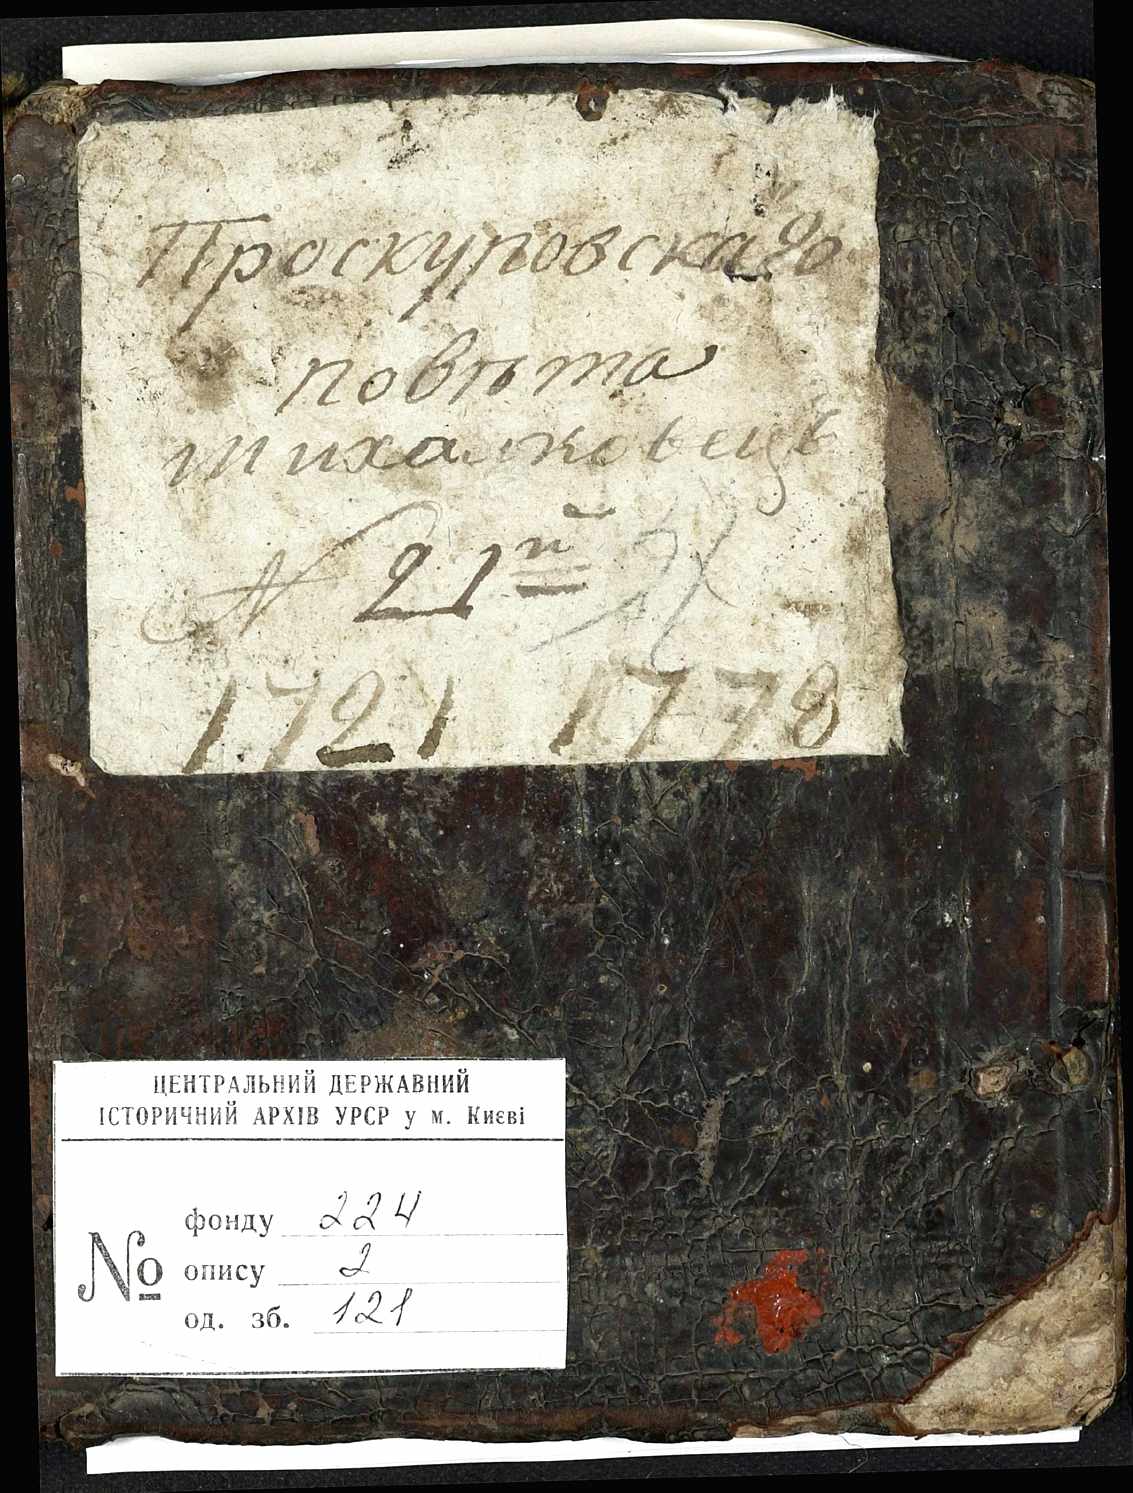 Проскуровскаго
повѣта
михалковецъ
№ 21й
1721 1778
ЦЕНТРАЛЬНИЙ ДЕРЖАВНИЙ
ІСТОРИЧНИЙ АРХІВ УРСР у м. Києві
№
фонду 224
опису 2
од. зб. 121